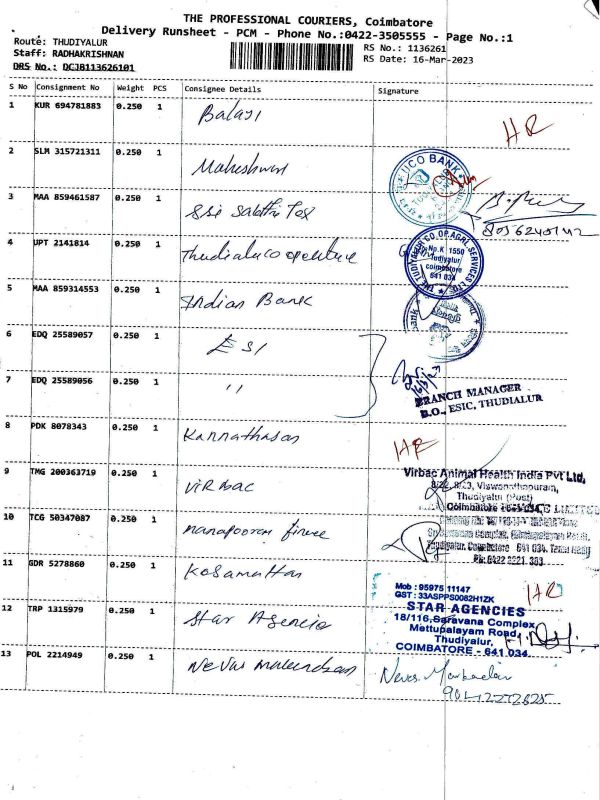 THE PROFESSIONAL COURIERS, Coimbatore
Delivery Runsheet - PCM - Phone No.:0422-3505555 - Page No.:1
Route: THUDIYALUR
Staff: RADHAKRISHNAN
DRS No.: DCJB113626101
RS No.: 1136261
RS Date: 16-Mar-2023
S No Consignment No Weight PCS Consignee Details Signature
1 KUR 694781883 0.250 1 Balaji HR
2 SLM 315721311 0.250 1 Maheshwari
UCO BANK
3 MAA 859461587 0.250 1 Sri Sakthi Tex
4 UPT 2141814 0.250 1 Thudialur cooperative
THE THUDIYALUR CO.OP.AGRL.SERVICES LTD.
No.K 1550
Thudiyalur
coimbatore
641 034
5 MAA 859314553 0.250 1 Indian Bank
6 EDQ 25589057 0.250 1 ESI
7 EDQ 25589056 0.250 1 "
16/3/23
BRANCH MANAGER
B.O., ESIC, THUDIALUR
8 PDK 8078343 0.250 1 Kannathasan HR
9 TMG 200363719 0.250 1 VIRbac
Virbac Animal Health India Pvt Ltd,
Viswanathapuram,
Thudiyalur (Post)
Coimbatore
10 TCG 50347087 0.250 1 manapooram finance
Thudiyalur, Coimbatore 641 034. Tamil Nadu
11 GDR 5278860 0.250 1 Kosamattam HR
Mob : 95975 11147
GST : 33ASPPS0082H1ZK
12 TRP 1315979 0.250 1 Star Agencie
STAR AGENCIES
18/116, Saravana Complex
Mettupalayam Road,
Thudiyalur,
COIMBATORE - 641 034.
13 POL 2214949 0.250 1